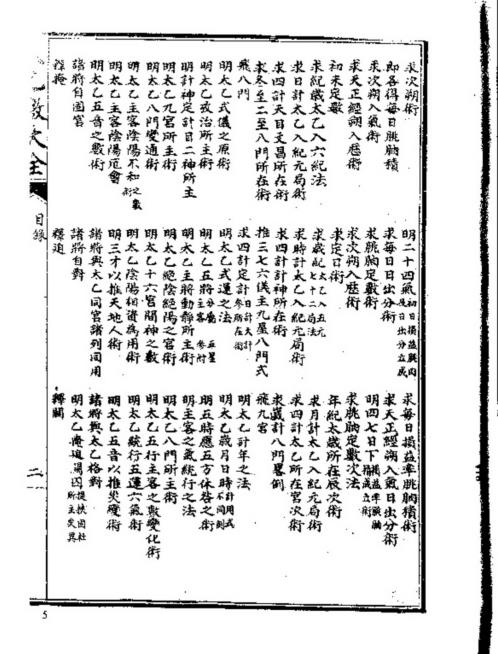 求次朔術
明二十四氣初日損益與四後日出分立成
求每日損益率朓朒積術
即各得每日朓朒積
求每日日出分術
求天正經朔入氣日出分術
求次朔入氣術
求朓朒定數術
明四七日下損益率朓朒積成立術
求天正經朔入曆術
求次朔入曆術
求朓朒定數次法
初末定數
求定日術
年紀太歲所在辰次術
求紀歲太乙入六紀法
求歲紀太乙入五元七十二局法
求月計太乙入紀元局術
求日計太乙入紀元局術
求時計太乙入紀元局術
求四計太乙所在宮次術
求四計天目文昌所在術
求四計計神所在術
求歲計八門晷例
求冬至二至八門所在術
推三七六儀主九星八門式
飛九宮
飛八門
求四計定計日計大計參所在術
明太乙計年之法
明太乙式儀之原術
明太乙式運之法
明太乙歲月日時計用式不同例
明太乙攷治所主術
明太乙五將分屬五星參附
明五時應五方休咎之術
明計神定計目二神所主
明太乙主將動靜所主術
明主客之氣統行之法
明太乙九宮所主術
明太乙絕陰絕陽之宮術
明太乙八門所主術
明太乙八門變通術
明太乙十六宮間神之數
明太乙五行主客之數變化術
明太乙主客陰陽不和之數術
明太乙陰陽相資為用術
明太乙統行五運六氣術
明太乙主客陰陽厄會
明三才以推天地人術
明太乙五音以推災變術
明太乙五音之數術
諸將與太乙同宮諸列同用
諸將與太乙格對
諸將自囚宮
諸將自對
明太乙掩迫關囚提挾固杜所主災異
釋掩
釋迫
釋關
太乙數大全
目錄
二
5